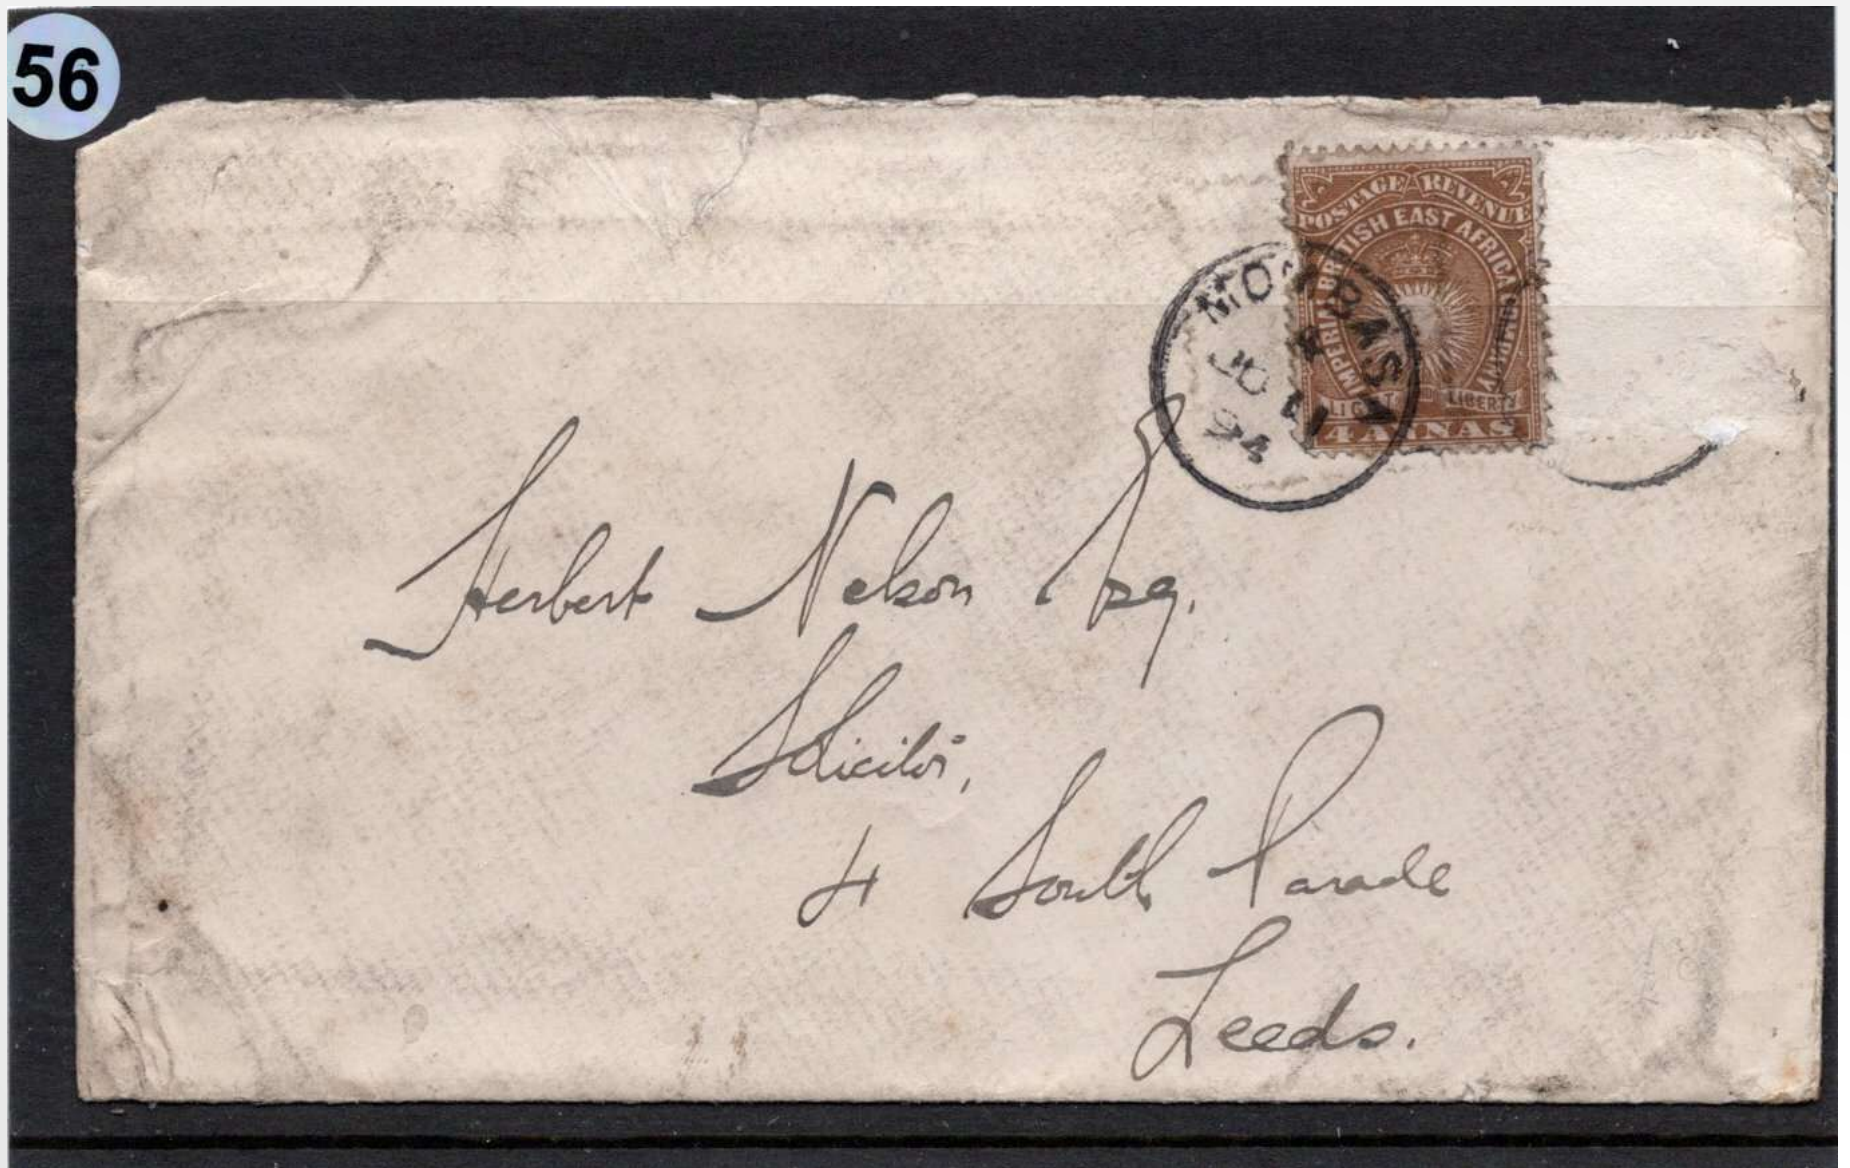 56
POSTAGE REVENUE
IMPERIAL BRITISH EAST AFRICA COMPANY
LIGHT AND LIBERTY
4 ANNAS
MOMBASA
94
Herbert Nelson Esq.
Solicitor,
4 South Parade
Leeds.